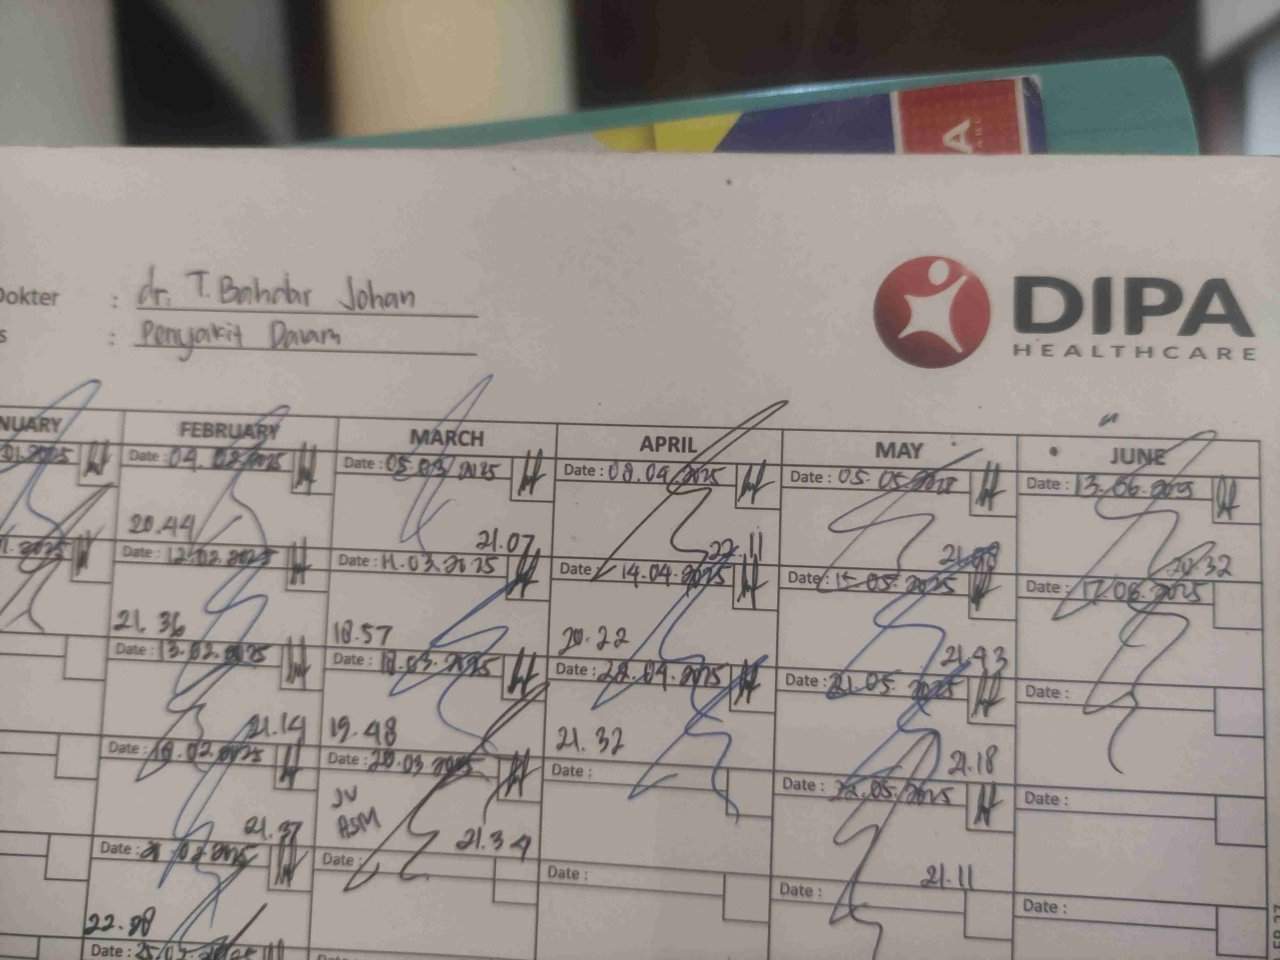 Dokter : dr. T. Bahdar Johan
s : Penyakit Dalam
DIPA
HEALTHCARE
NUARY FEBRUARY MARCH APRIL MAY JUNE
.01.2025 Date : 04.02.2025 Date : 05.03.2025 Date : 08.04.2025 Date : 05.05. Date : 13.06.2025
20.44 21.07 22.11
Date : 12.02.2025 Date : 11.03.2025 Date : 14.04.2025 Date : 15.05.2025 Date : 17.06.2025
20.32
21.36 18.57 20.22 21.43
Date : 13.02.2025 Date : .03.2025 Date : 22.04.2025 Date : 21.05.2025 Date :
21.14 19.48 21.32 21.18
Date : .02.2025 Date : 20.03.2025 Date : Date : 22.05.2025 Date :
JV
ASM
21.37 21.34 21.11
Date : .02.2025 Date : Date : Date : Date :
22.
Date : 25.02.2025